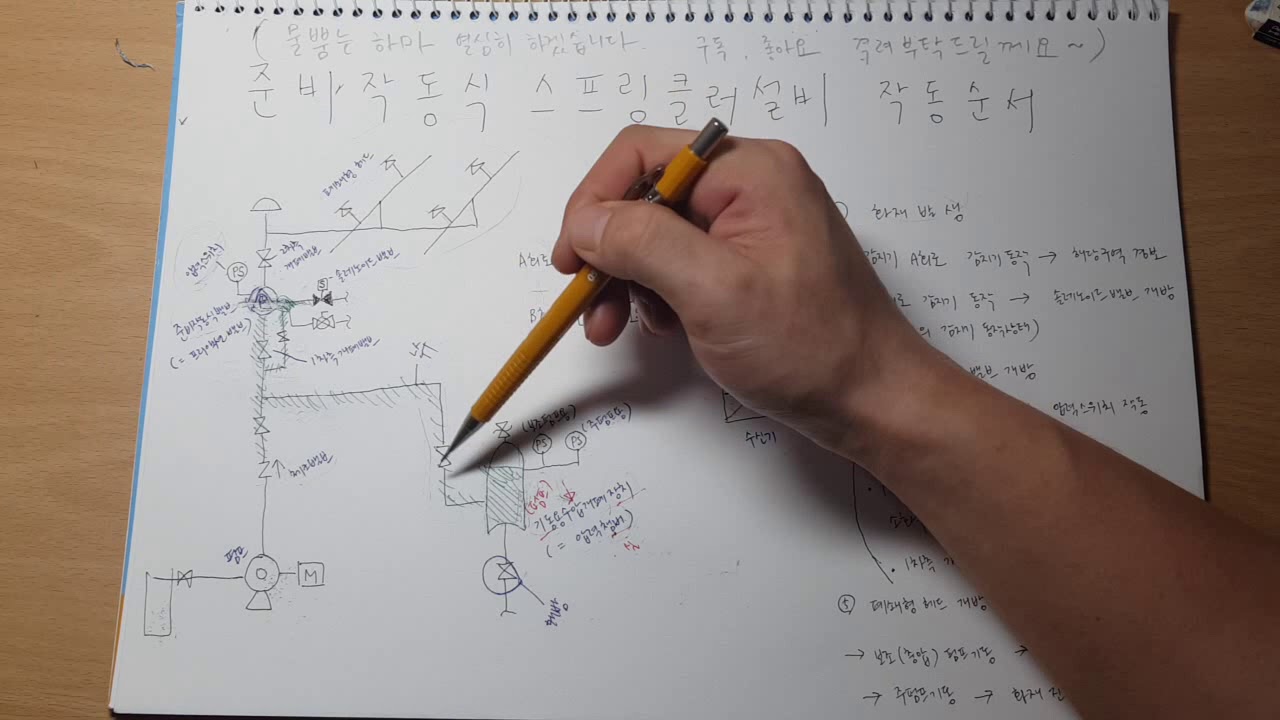 ( 물뿜는 하마 열심히 하겠습니다. 구독, 좋아요 격려 부탁드릴께요~ )
준비작동식 스프링클러설비 작동순서
폐쇄형 헤드
압력스위치
PS
2차측 개폐밸브
S
솔레노이드밸브
준비작동식밸브
(= 프리액션밸브)
1차측 개폐밸브
체크밸브
펌프
M
(보조펌프용)
(주펌프용)
PS
PS
기동용수압개폐장치
(= 압력챔버)
배수
A회로
수신기
화재 발생
감지기 A회로 감지기 동작 → 해당구역 경보
감지기 동작 → 솔레노이드밸브 개방
감지기 동작상태)
밸브 개방
압력스위치 작동
• 1차측
⑤ 폐쇄형 헤드 개방
→ 보조(충압) 펌프기동 →
→ 주펌프기동 → 화재 진